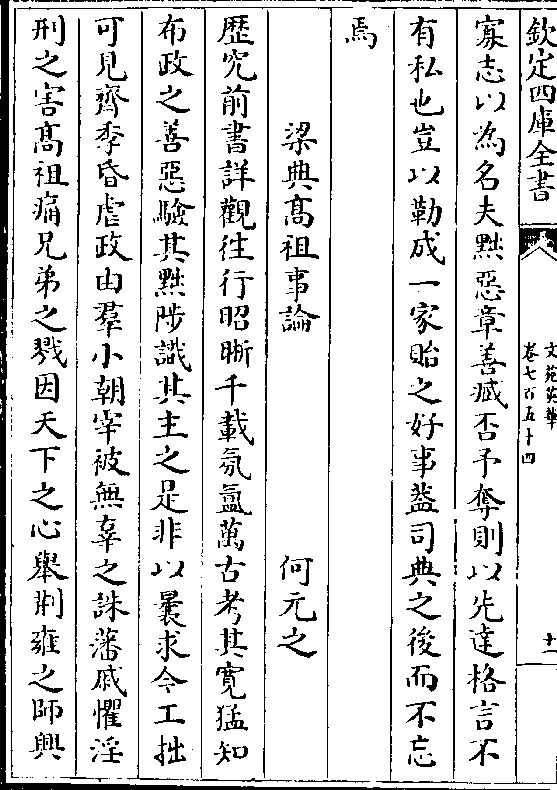 欽定四庫全書
文苑英華
卷七百五十四
十一
寡志以為名夫黜惡章善臧否予奪則以先達格言不
有私也豈以勒成一家貽之好事葢司典之後而不忘
焉
梁典髙祖事論
何元之
歴究前書詳觀往行昭晣千載氛氲萬古考其寛猛知
布政之善惡驗其黜陟識其主之是非以曩求今工拙
可見齊季昏虐政由羣小朝宰被無辜之誅藩戚懼淫
刑之害髙祖痛兄弟之戮因天下之心舉荆雍之師興